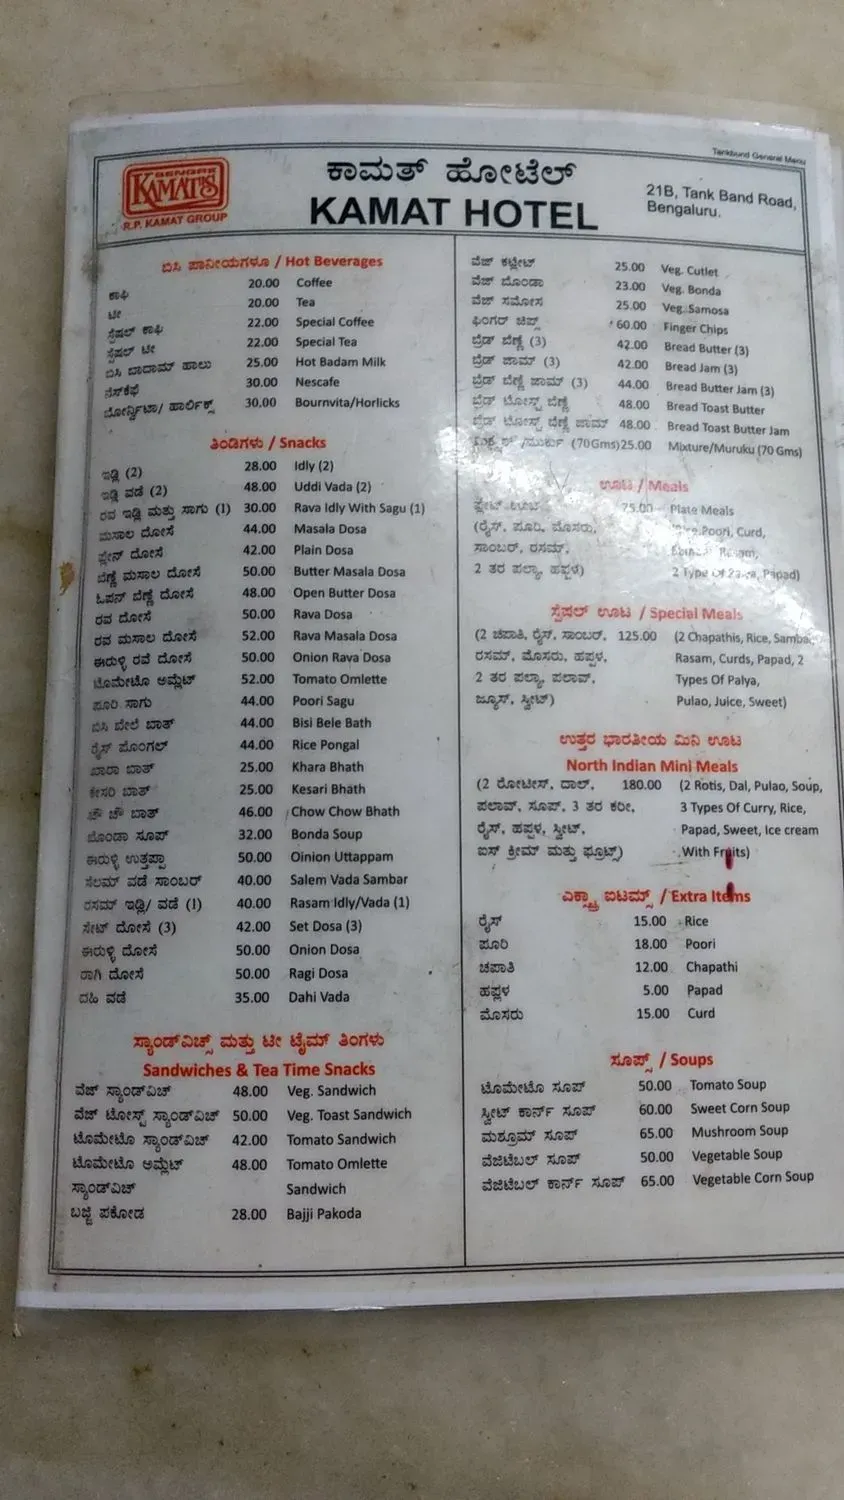 Tankbund General Menu
BENGRE
KAMATS
R.P. KAMAT GROUP
ಕಾಮತ್ ಹೋಟೆಲ್
KAMAT HOTEL
21B, Tank Band Road,
Bengaluru.
ಬಿಸಿ ಪಾನೀಯಗಳೂ / Hot Beverages
ಕಾಫಿ 20.00 Coffee
ಟೀ 20.00 Tea
ಸ್ಪೆಷಲ್ ಕಾಫಿ 22.00 Special Coffee
ಸ್ಪೆಷಲ್ ಟೀ 22.00 Special Tea
ಬಿಸಿ ಬಾದಾಮ್ ಹಾಲು 25.00 Hot Badam Milk
ನೆಸ್‌ಕೆಫೆ 30.00 Nescafe
ಬೋರ್ನ್ವಿಟಾ/ ಹಾರ್ಲಿಕ್ಸ್ 30.00 Bournvita/Horlicks
ತಿಂಡಿಗಳು / Snacks
ಇಡ್ಲಿ (2) 28.00 Idly (2)
ಇಡ್ಲಿ ವಡೆ (2) 48.00 Uddi Vada (2)
ರವ ಇಡ್ಲಿ ಮತ್ತು ಸಾಗು (1) 30.00 Rava Idly With Sagu (1)
ಮಸಾಲ ದೋಸೆ 44.00 Masala Dosa
ಪ್ಲೇನ್ ದೋಸೆ 42.00 Plain Dosa
ಬೆಣ್ಣೆ ಮಸಾಲ ದೋಸೆ 50.00 Butter Masala Dosa
ಓಪನ್ ಬೆಣ್ಣೆ ದೋಸೆ 48.00 Open Butter Dosa
ರವ ದೋಸೆ 50.00 Rava Dosa
ರವ ಮಸಾಲ ದೋಸೆ 52.00 Rava Masala Dosa
ಈರುಳ್ಳಿ ರವೆ ದೋಸೆ 50.00 Onion Rava Dosa
ಟೊಮೇಟೊ ಅಮ್ಲೆಟ್ 52.00 Tomato Omlette
ಪೂರಿ ಸಾಗು 44.00 Poori Sagu
ಬಿಸಿ ಬೇಲೆ ಬಾತ್ 44.00 Bisi Bele Bath
ರೈಸ್ ಪೊಂಗಲ್ 44.00 Rice Pongal
ಖಾರಾ ಬಾತ್ 25.00 Khara Bhath
ಕೇಸರಿ ಬಾತ್ 25.00 Kesari Bhath
ಚೌ ಚೌ ಬಾತ್ 46.00 Chow Chow Bhath
ಬೊಂಡಾ ಸೂಪ್ 32.00 Bonda Soup
ಈರುಳ್ಳಿ ಉತ್ತಪ್ಪಾ 50.00 Oinion Uttappam
ಸೆಲಮ್ ವಡೆ ಸಾಂಬರ್ 40.00 Salem Vada Sambar
ರಸಮ್ ಇಡ್ಲಿ/ ವಡೆ (1) 40.00 Rasam Idly/Vada (1)
ಸೇಟ್ ದೋಸೆ (3) 42.00 Set Dosa (3)
ಈರುಳ್ಳಿ ದೋಸೆ 50.00 Onion Dosa
ರಾಗಿ ದೋಸೆ 50.00 Ragi Dosa
ದಹಿ ವಡೆ 35.00 Dahi Vada
ಸ್ಯಾಂಡ್‌ವಿಚ್ಸ್ ಮತ್ತು ಟೀ ಟೈಮ್ ತಿಂಗಳು
Sandwiches & Tea Time Snacks
ವೆಜ್ ಸ್ಯಾಂಡ್‌ವಿಚ್ 48.00 Veg. Sandwich
ವೆಜ್ ಟೋಸ್ಟ್ ಸ್ಯಾಂಡ್‌ವಿಚ್ 50.00 Veg. Toast Sandwich
ಟೊಮೇಟೊ ಸ್ಯಾಂಡ್‌ವಿಚ್ 42.00 Tomato Sandwich
ಟೊಮೇಟೊ ಅಮ್ಲೆಟ್ 48.00 Tomato Omlette
ಸ್ಯಾಂಡ್‌ವಿಚ್ Sandwich
ಬಜ್ಜಿ ಪಕೋಡ 28.00 Bajji Pakoda
ವೆಜ್ ಕಟ್ಲೇಟ್ 25.00 Veg. Cutlet
ವೆಜ್ ಬೊಂಡಾ 23.00 Veg. Bonda
ವೆಜ್ ಸಮೋಸ 25.00 Veg. Samosa
ಫಿಂಗರ್ ಚಿಪ್ಸ್ 60.00 Finger Chips
ಬ್ರೆಡ್ ಬೆಣ್ಣೆ (3) 42.00 Bread Butter (3)
ಬ್ರೆಡ್ ಜಾಮ್ (3) 42.00 Bread Jam (3)
ಬ್ರೆಡ್ ಬೆಣ್ಣೆ ಜಾಮ್ (3) 44.00 Bread Butter Jam (3)
ಬ್ರೆಡ್ ಟೋಸ್ಟ್ ಬೆಣ್ಣೆ 48.00 Bread Toast Butter
ಬ್ರೆಡ್ ಟೋಸ್ಟ್ ಬೆಣ್ಣೆ ಜಾಮ್ 48.00 Bread Toast Butter Jam
(70Gms) 25.00 Mixture/Muruku (70 Gms)
ಊಟ / Meals
ಪ್ಲೇಟ್ ಊಟ 75.00 Plate Meals
(ರೈಸ್, ಪೂರಿ, ಮೊಸರು, Poori, Curd,
ಸಾಂಬರ್, ರಸಮ್, Rasam,
2 ತರ ಪಲ್ಯಾ, ಹಪ್ಪಳ) 2 Type Of Palya, Papad)
ಸ್ಪೆಷಲ್ ಊಟ / Special Meals
(2 ಚಪಾತಿ, ರೈಸ್, ಸಾಂಬರ್, 125.00 (2 Chapathis, Rice, Sambar,
ರಸಮ್, ಮೊಸರು, ಹಪ್ಪಳ, Rasam, Curds, Papad, 2
2 ತರ ಪಲ್ಯಾ, ಪಲಾವ್, Types Of Palya,
ಜ್ಯೂಸ್, ಸ್ವೀಟ್) Pulao, Juice, Sweet)
ಉತ್ತರ ಭಾರತೀಯ ಮಿನಿ ಊಟ
North Indian Mini Meals
(2 ರೋಟೀಸ್, ದಾಲ್, 180.00 (2 Rotis, Dal, Pulao, Soup,
ಪಲಾವ್, ಸೂಪ್, 3 ತರ ಕರೀ, 3 Types Of Curry, Rice,
ರೈಸ್, ಹಪ್ಪಳ, ಸ್ವೀಟ್, Papad, Sweet, Ice cream
ಐಸ್ ಕ್ರೀಮ್ ಮತ್ತು ಫ್ರೂಟ್ಸ್) With Fruits)
ಎಕ್ಸ್ಟ್ರಾ ಐಟಮ್ಸ್ / Extra Items
ರೈಸ್ 15.00 Rice
ಪೂರಿ 18.00 Poori
ಚಪಾತಿ 12.00 Chapathi
ಹಪ್ಪಳ 5.00 Papad
ಮೊಸರು 15.00 Curd
ಸೂಪ್ಸ್ / Soups
ಟೊಮೇಟೊ ಸೂಪ್ 50.00 Tomato Soup
ಸ್ವೀಟ್ ಕಾರ್ನ್ ಸೂಪ್ 60.00 Sweet Corn Soup
ಮಶ್ರೂಮ್ ಸೂಪ್ 65.00 Mushroom Soup
ವೆಜಿಟೆಬಲ್ ಸೂಪ್ 50.00 Vegetable Soup
ವೆಜಿಟೆಬಲ್ ಕಾರ್ನ್ ಸೂಪ್ 65.00 Vegetable Corn Soup